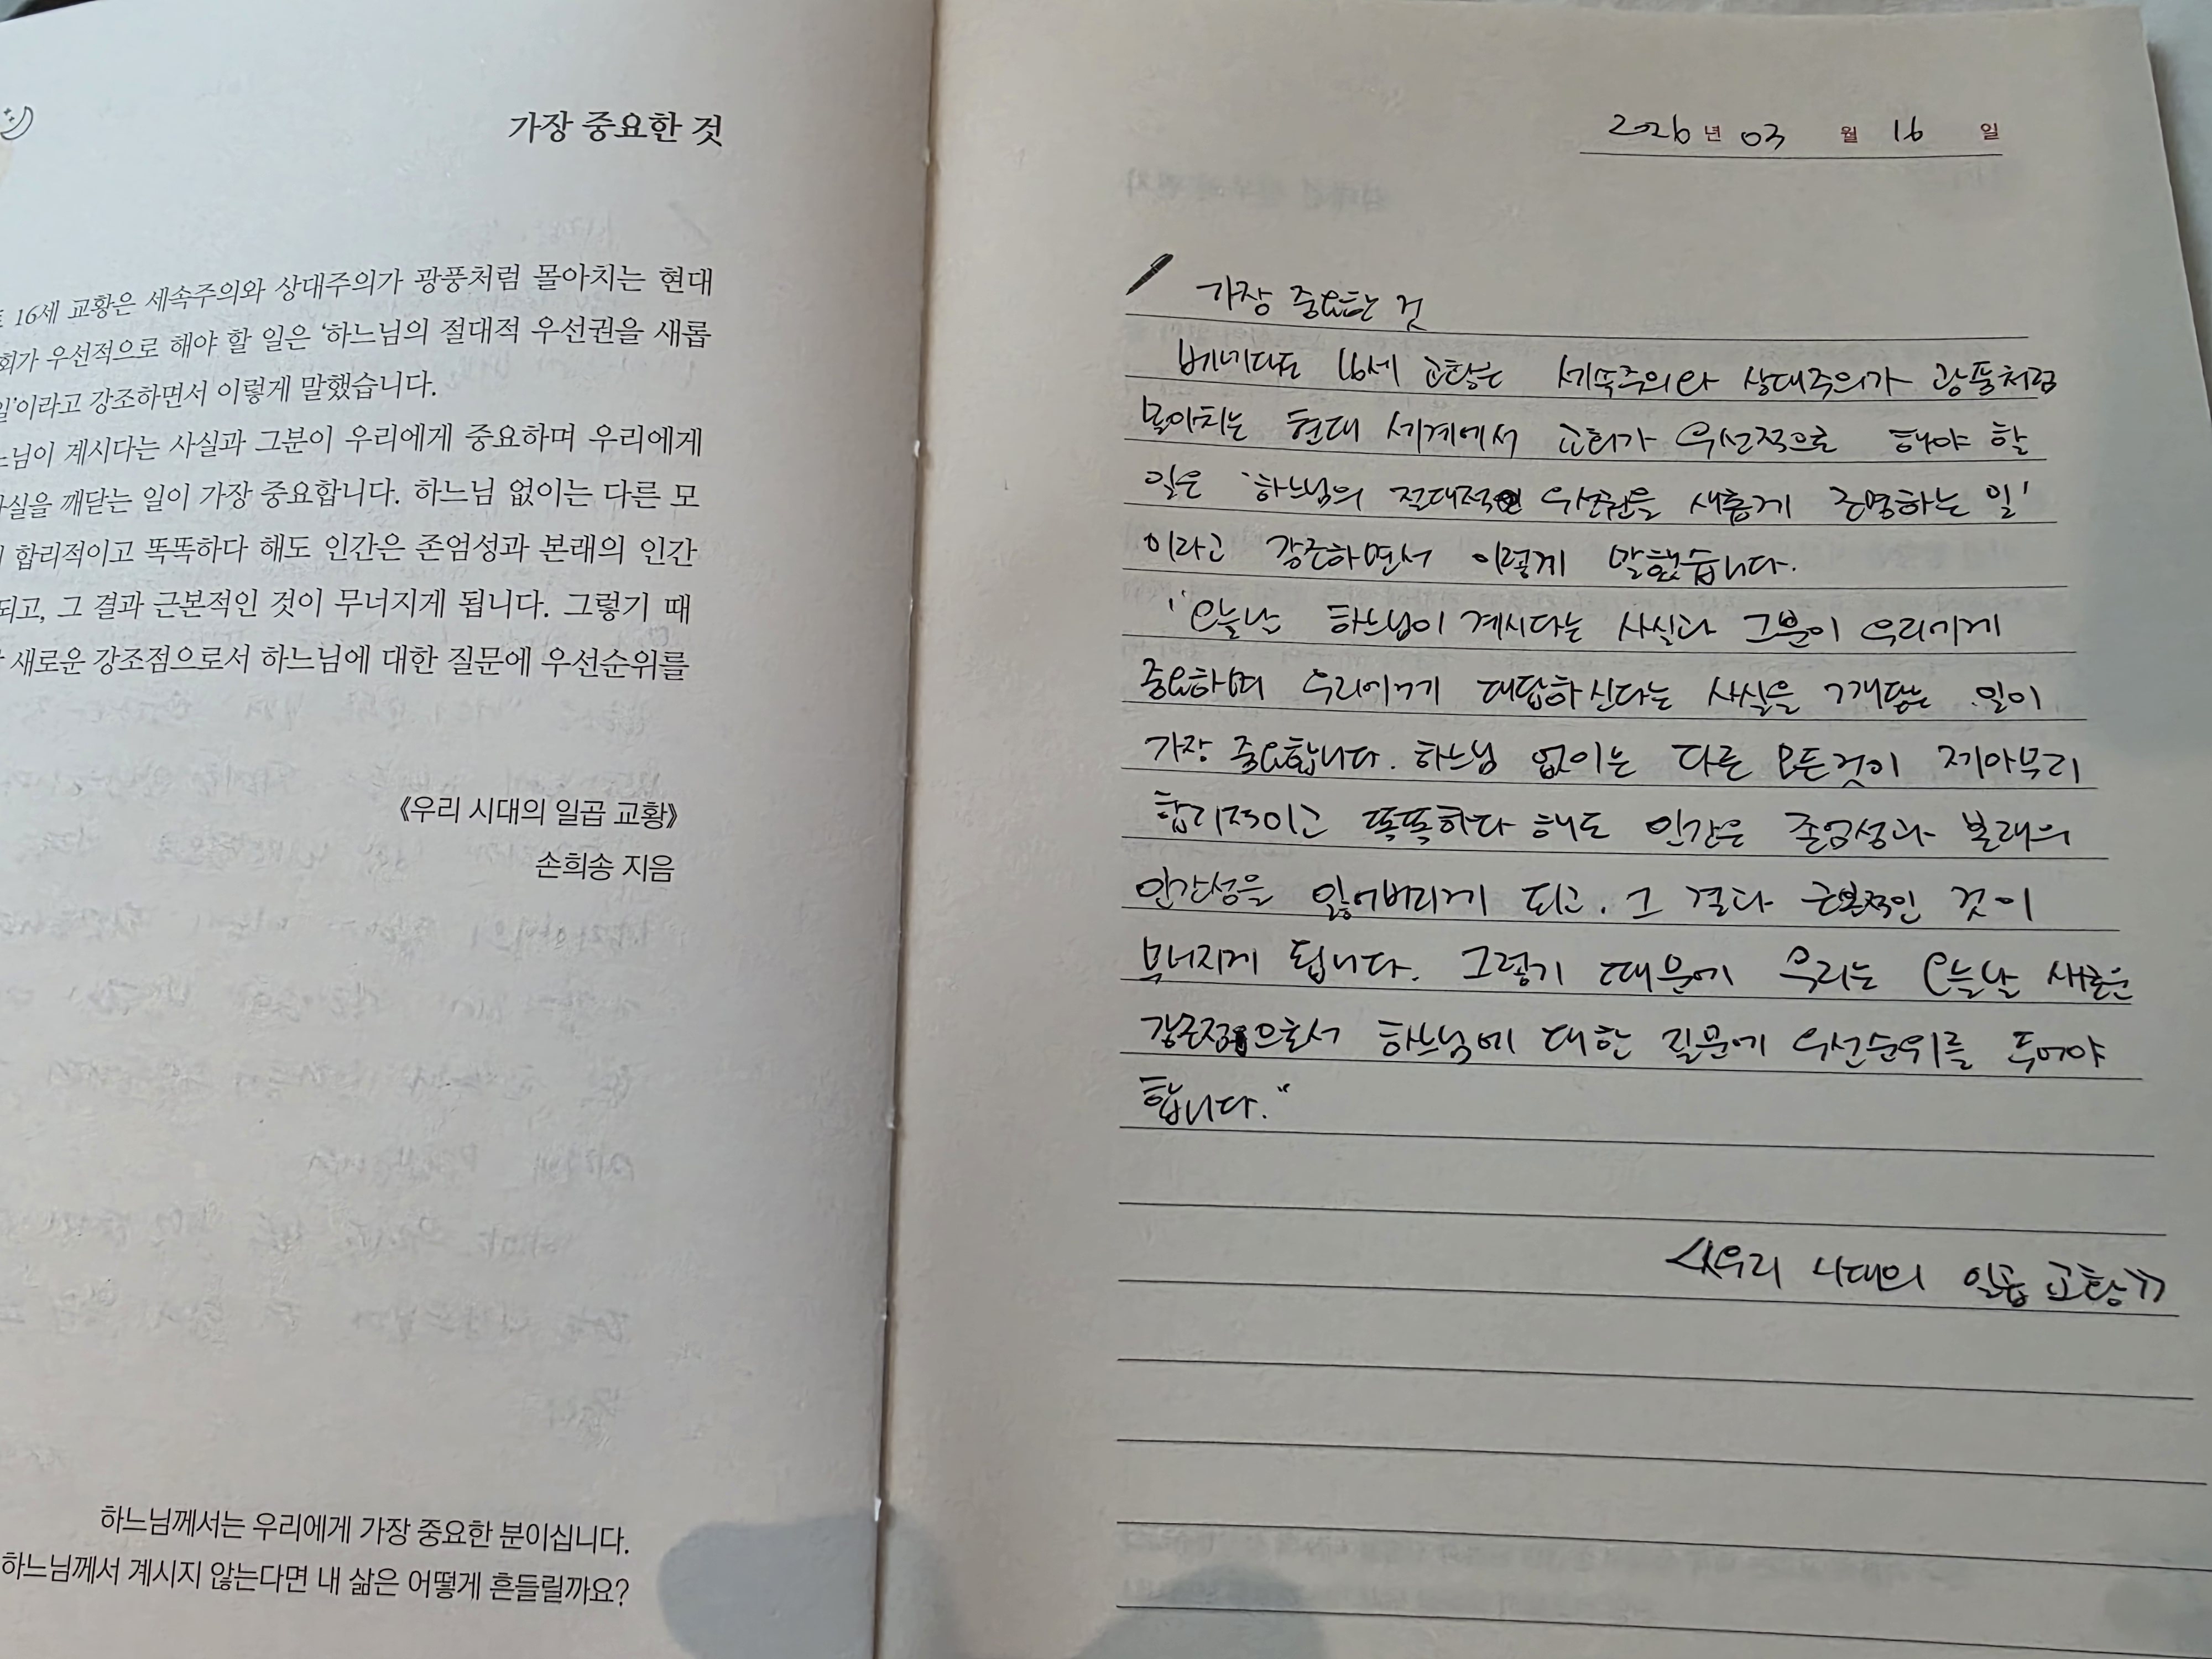 가장 중요한 것
16세 교황은 세속주의와 상대주의가 광풍처럼 몰아치는 현대
회가 우선적으로 해야 할 일은 '하느님의 절대적 우선권을 새롭
일'이라고 강조하면서 이렇게 말했습니다.
느님이 계시다는 사실과 그분이 우리에게 중요하며 우리에게
사실을 깨닫는 일이 가장 중요합니다. 하느님 없이는 다른 모
합리적이고 똑똑하다 해도 인간은 존엄성과 본래의 인간
되고, 그 결과 근본적인 것이 무너지게 됩니다. 그렇기 때
새로운 강조점으로서 하느님에 대한 질문에 우선순위를
《우리 시대의 일곱 교황》
손희송 지음
하느님께서는 우리에게 가장 중요한 분이십니다.
하느님께서 계시지 않는다면 내 삶은 어떻게 흔들릴까요?
2026년 03 월 16 일
가장 중요한 것
베네딕토 16세 교황은 세속주의와 상대주의가 광풍처럼
몰아치는 현대 세계에서 교회가 우선적으로 해야 할
일은 '하느님의 절대적인 우선권을 새롭게 조명하는 일'
이라고 강조하면서 이렇게 말했습니다.
"오늘날 하느님이 계시다는 사실과 그분이 우리에게
중요하며 우리에게 대답하신다는 사실을 깨닫는 일이
가장 중요합니다. 하느님 없이는 다른 모든것이 제아무리
합리적이고 똑똑하다 해도 인간은 존엄성과 본래의
인간성을 잃어버리게 되고, 그 결과 근본적인 것이
무너지게 됩니다. 그렇기 때문에 우리는 오늘날 새로운
강조점으로서 하느님에 대한 질문에 우선순위를 두어야
합니다."
《우리 시대의 일곱 교황》